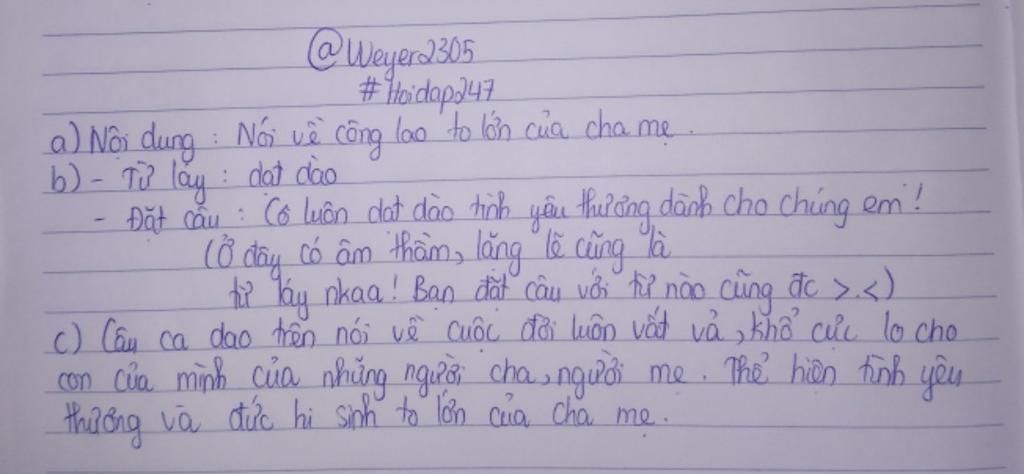 @Weyer2305
#Hoidap247
a) Nội dung : Nói về công lao to lớn của cha mẹ.
b) - Từ láy : dạt dào
- Đặt câu : Cô luôn dạt dào tình yêu thương dành cho chúng em!
(Ở đây có âm thầm, lặng lẽ cũng là
từ láy nkaa! Bạn đặt câu với từ nào cũng đc >.<)
c) Câu ca dao trên nói về cuộc đời luôn vất vả, khổ cực lo cho
con của mình của những người cha, người mẹ. Thể hiện tình yêu
thương và đức hi sinh to lớn của cha mẹ.